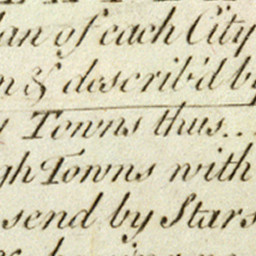 lan of each City
n & describ'd by
Towns thus..
gh Towns with
send by Stars